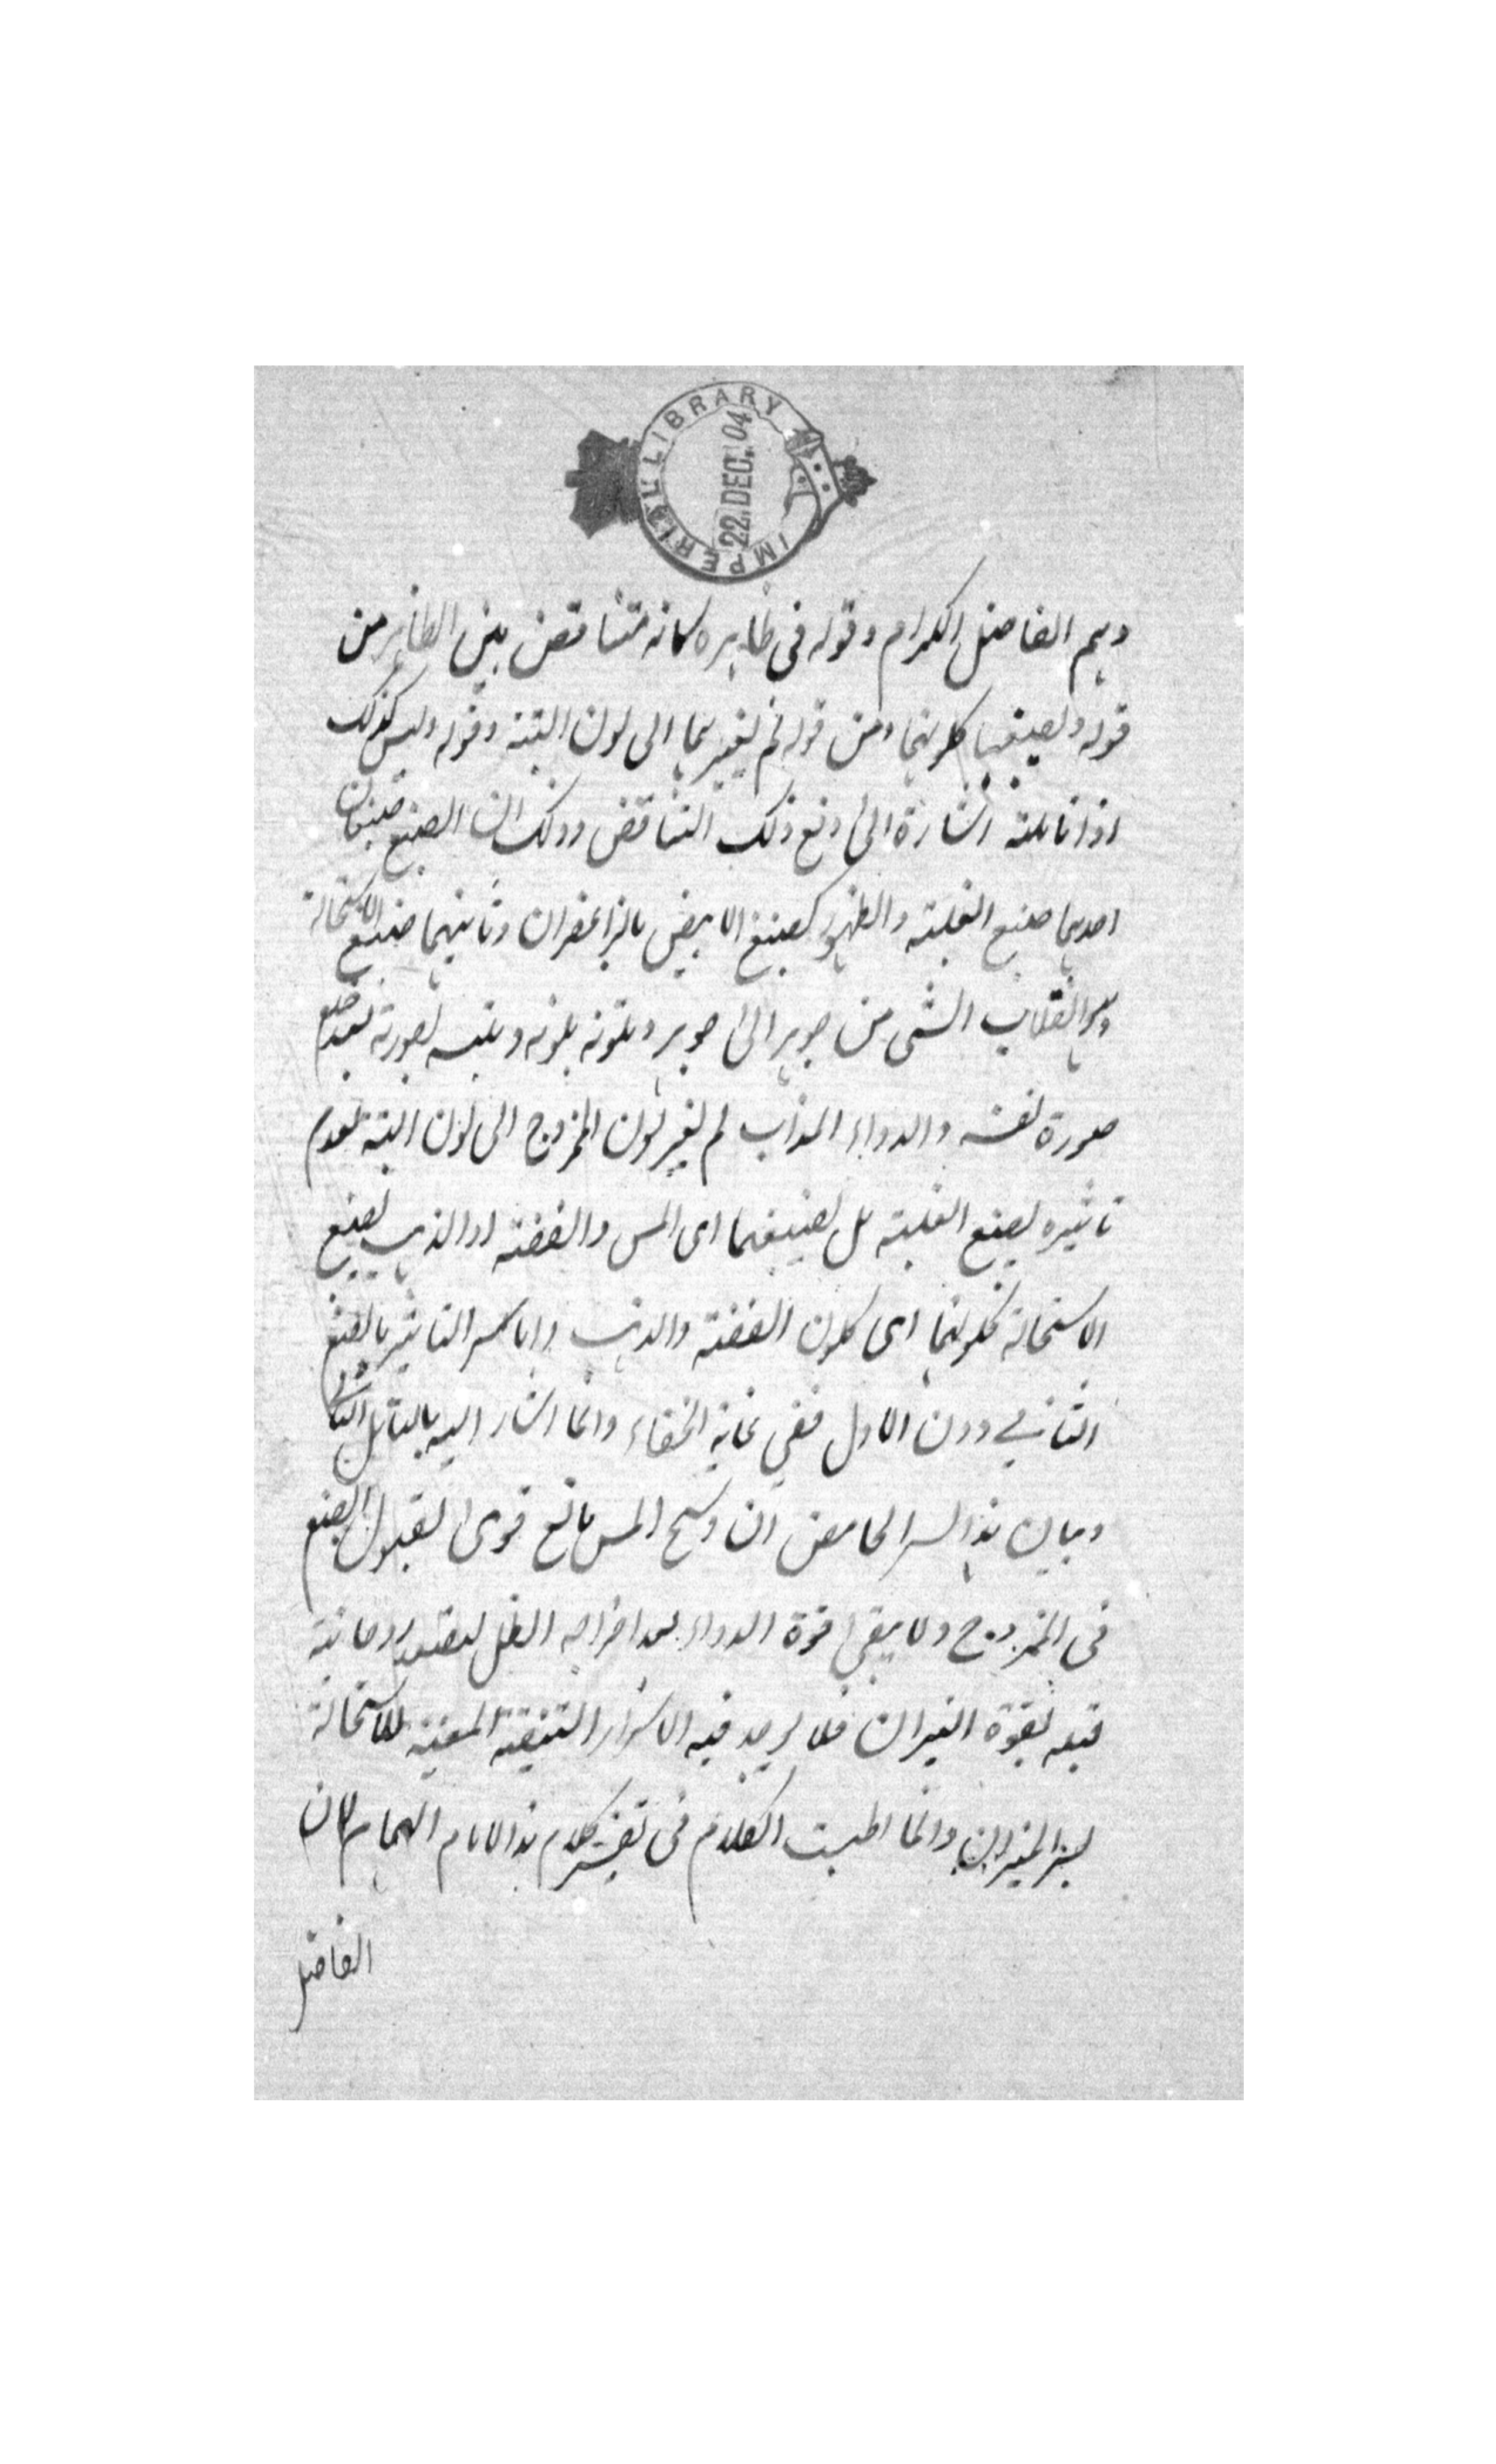 IMPERIAL LIBRARY
22. DEC. 04
وهم الفاضل الكرام وقوله فى ظاهره كانه متناقض بين الظاهر من
قوله ولصبغها كلونهما ومن قوله لم يغيرهما الى لون البتة وقوله وليس كذلك
اذا تاملته اشارة الى دفع ذلك التناقض وذلك ان الصبغ صبغان
احدهما صبغ الغلبته والظهور كصبغ الابيض بالزاعفران وثانيهما صبغ الاستحالة
وهو انقلاب الشى من جوهر الى جوهر وتلونه بلونه وتلبسه بصورته بعد خلع
صورة نفسه والدواء المذاب لم يغير لون الممزوج الى لون البتة لعدم
تاثيره بصبغ الغلبته بل لصبغهما اى المس والفضته او الذهب بصبغ
الاستحالة كلونهما اى كلون الفضته والذهب واما سر التاثير بالصبغ
الثانى دون الاول ففى غاية الخفاء وانما اشار اليه بالتامل
وبيان هذا السر الحامض ان وسخ المس مانع قوى لقبول الصبغ
فى الممزوج ولا يبقى قوة الدواء بعد اخراجه الظل روحانيته
قبعه بقوة النيران فلا يوجد فيه الاسرار للاستحالة
وانما اطيبت الكلام فى تفسير كلام هذا الامام الهمام لان
الفاضل